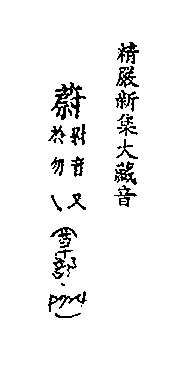 精嚴新集大藏音
蔚
尉音又
於勿㇏
(草部.